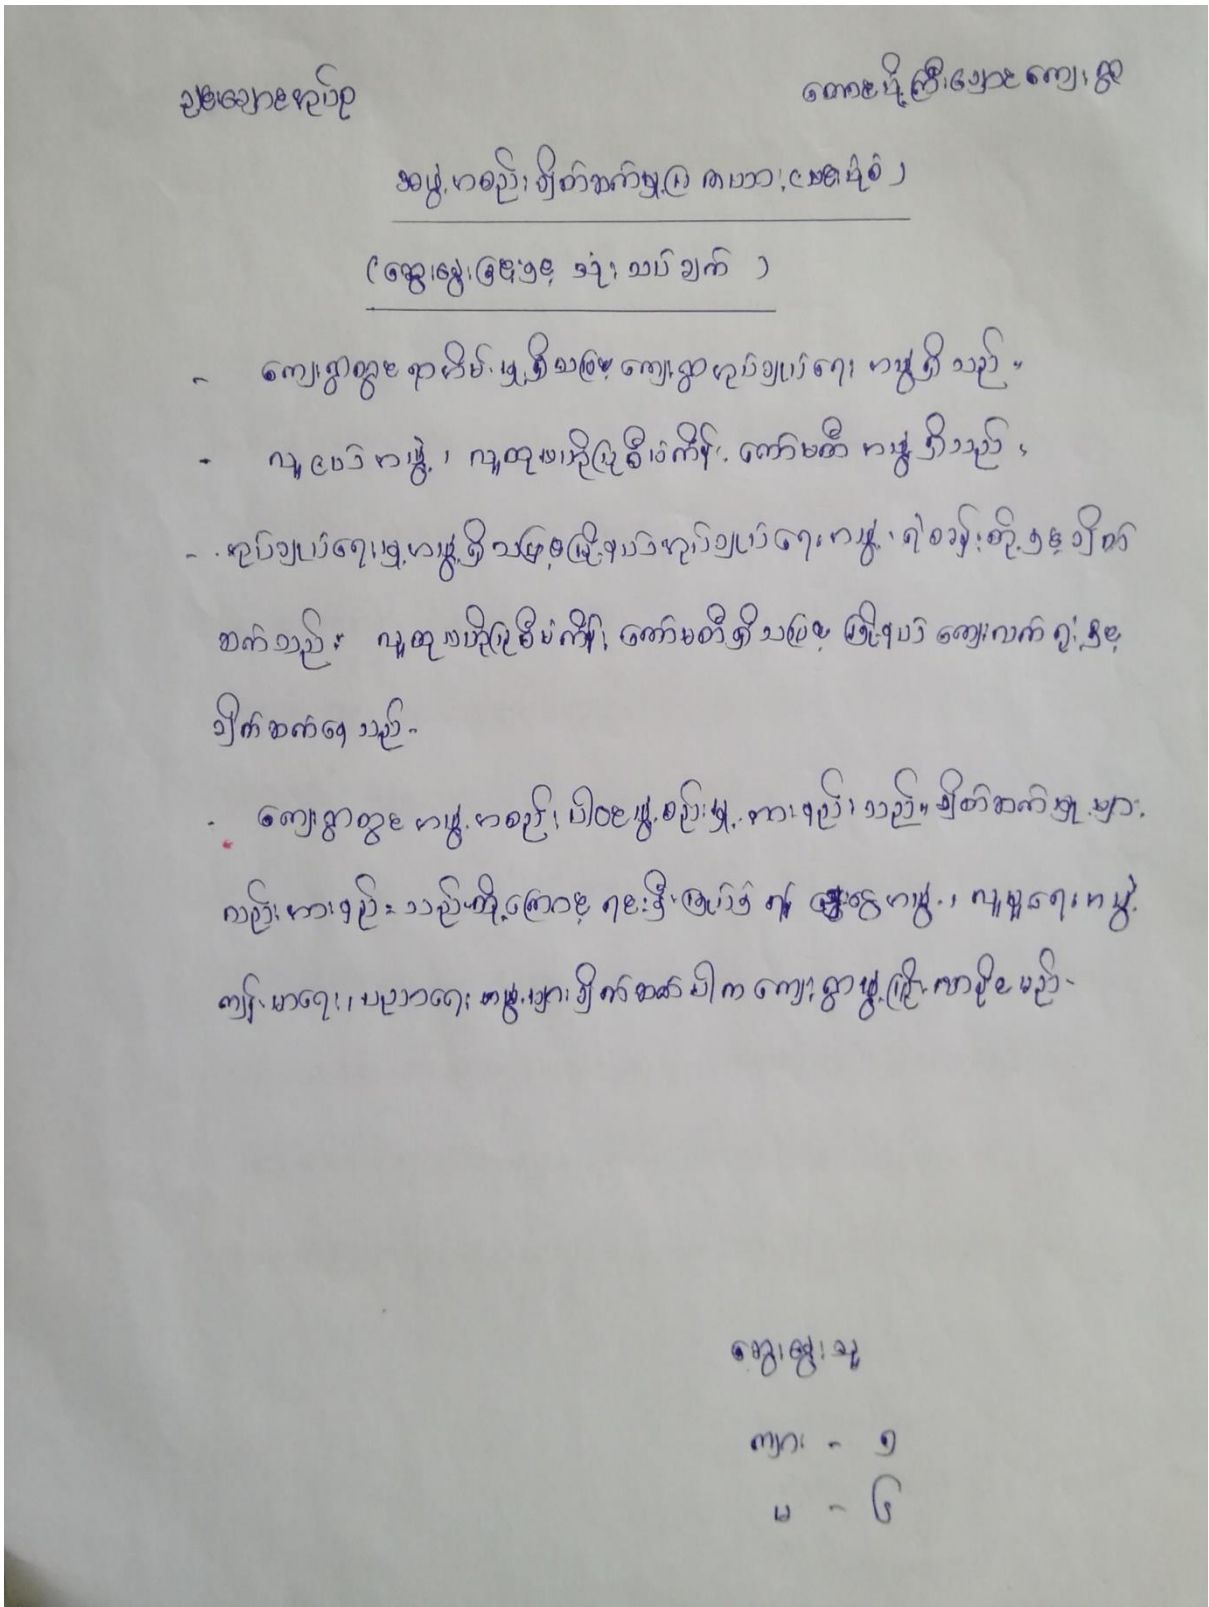 ချင်းချောင်းအုပ်စု
တောင်ပို့ကြီးချောင်ကျေးရွာ
အဖွဲ့အစည်းချိတ်ဆက်မှုပြ ကားသား(ဗင်းပုံစံ)
(ဆွေးနွေးခြင်းနှင့် သုံးသပ်ချက်)
- ကျေးရွာတွင် ရာအိမ်မှူးရှိသဖြင့် ကျေးရွာအုပ်ချုပ်ရေးအဖွဲ့ရှိသည်။
- လူငယ်အဖွဲ့၊ လူထုဗဟိုပြုစီမံကိန်း ကော်မတီအဖွဲ့ရှိသည်။
- အုပ်ချုပ်ရေးမှူးအဖွဲ့ရှိသဖြင့်မြို့နယ်အုပ်ချုပ်ရေးအဖွဲ့၊ ရဲစခန်းတို့နှင့်ချိတ်
ဆက်သည်။ လူထုဗဟိုပြုစီမံကိန်း ကော်မတီရှိသဖြင့် မြို့နယ် ကျေးလက်ရုံးနှင့်
ချိတ်ဆက်နေသည်။
- ကျေးရွာတွင် အဖွဲ့အစည်းပါဝင်ဖွဲ့စည်းမှု အားနည်းသည်။ ချိတ်ဆက်မှုများ
လည်းအားနည်းသည်။ ထို့ကြောင့် ရင်းနှီးမြှုပ်နှံ ငွေအဖွဲ့၊ လူမှုရေးအဖွဲ့
ကျန်းမာရေး၊ ပညာရေးအဖွဲ့များချိတ်ဆက်ပါက ကျေးရွာဖွံ့ဖြိုးလာနိုင်မည်။
ဆွေးနွေးသူ
ကျား - ၅
မ - ၆